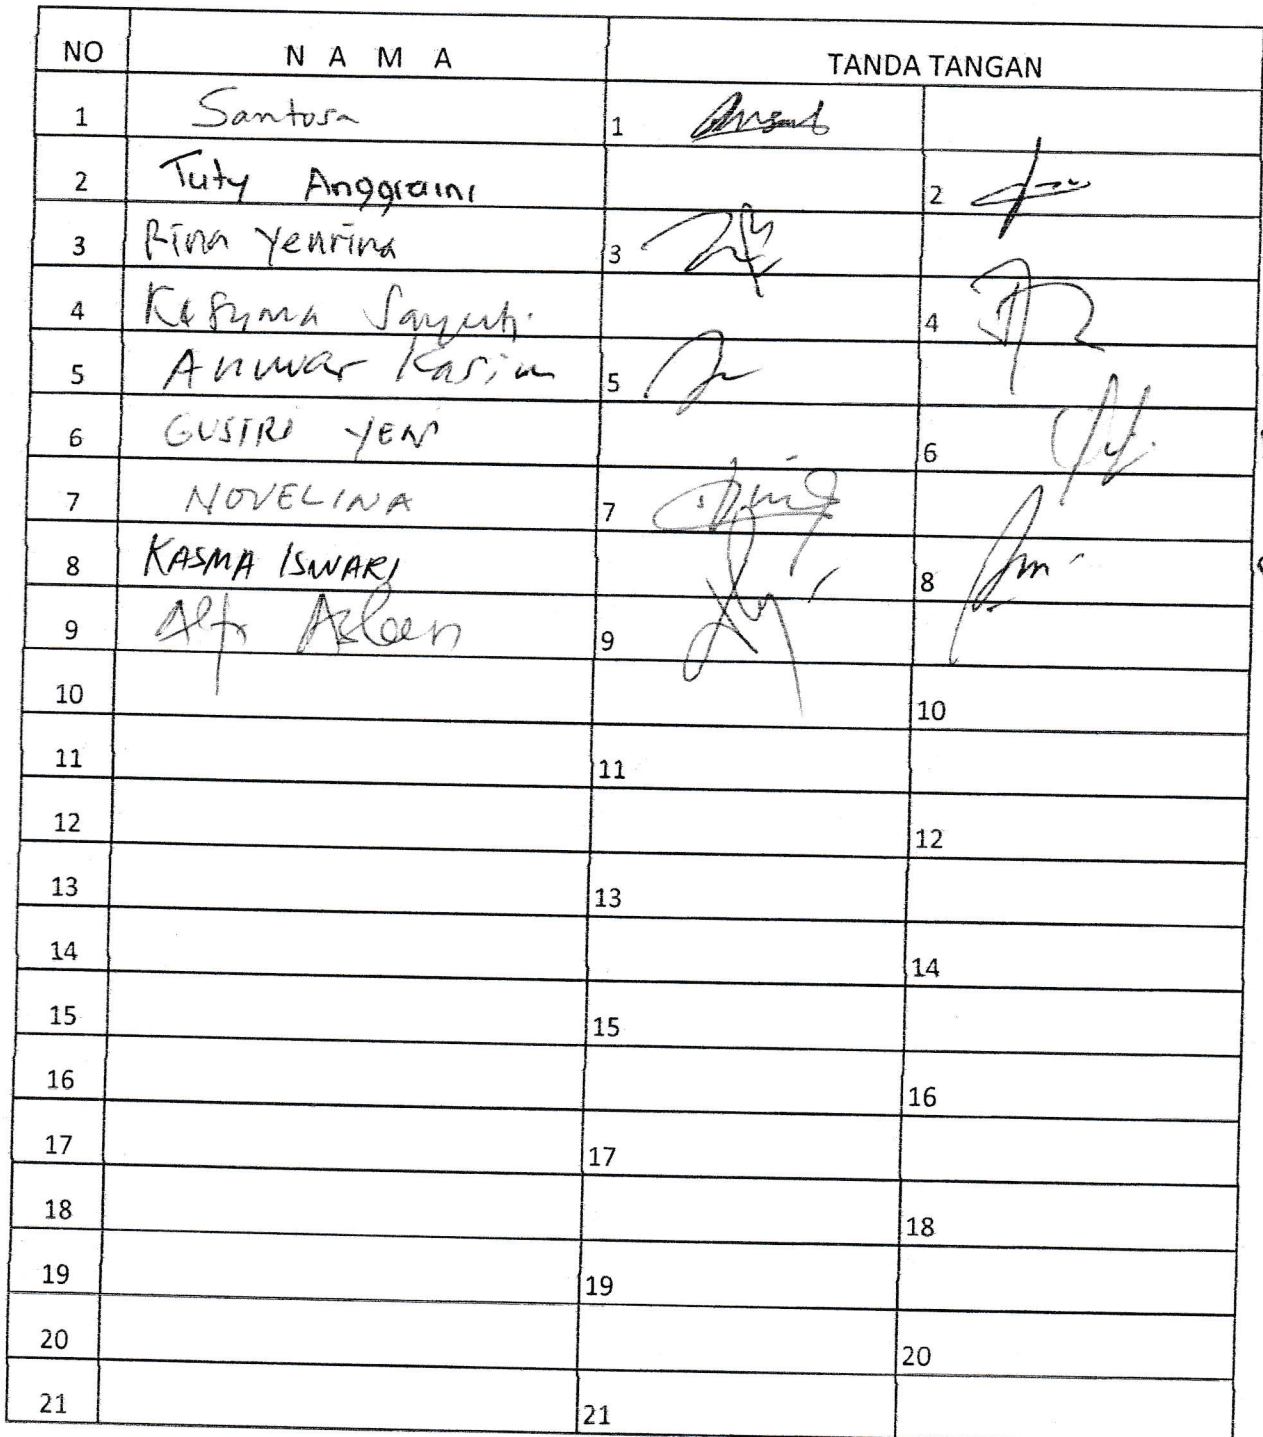 NO N A M A TANDA TANGAN
1 Santosa 1
2 Tuty Anggraini 2
3 Rina Yenrina 3
4 Sayuti 4
5 Anwar Kasim 5
6 GUSTRI YENI 6
7 NOVELINA 7
8 KASMA ISWARI 8
9 9
10 10
11 11
12 12
13 13
14 14
15 15
16 16
17 17
18 18
19 19
20 20
21 21